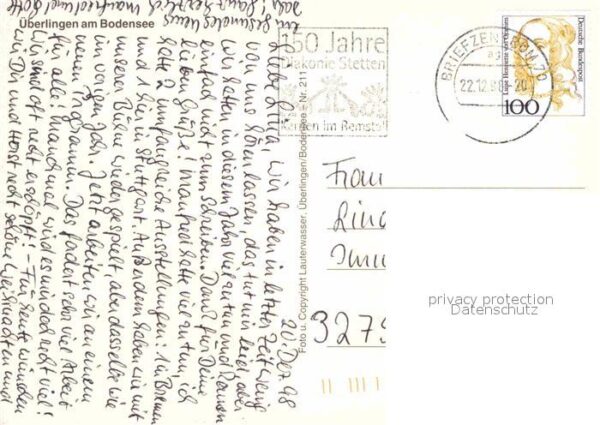 Überlingen am Bodensee
20. Dez. 98
Liebe Lina, wir haben in letzter Zeit wenig
von uns hören lassen, das tut mir leid, aber
wir hatten in diesem Jahr viel zu tun und kamen
einfach nicht zum Schreiben. Dank für Deine
lieben Grüße! Manfred hatte viel zu tun, ich
hatte 2 umfangreiche Ausstellungen: 1 in Bremen
und 1 hier in Stuttgart. Außerdem haben wir mit
unserer Bühne wieder gespielt, aber dasselbe wie
im vorigen Jahr. Jetzt arbeiten wir an einem
neuen Programm. Das fordert sehr viel Arbeit
für alle! Manchmal wird es mir doch recht viel!
Wir sind oft recht erschöpft! - Für heute wünschen
wir Dir und Horst recht schöne Weihnachten und
ein gesundes neues
Jahr! Ganz herzlich Manfred und
Foto u. Copyright Lauterwasser, Überlingen/Bodensee · Nr. 211
150 Jahre
Diakonie Stetten
Kernen im Remstal
BRIEFZENTRUM 70
22.12.98 - 20
Deutsche Bundespost
Luise Henriette von Oranien
100
Frau
3279
privacy protection
Datenschutz